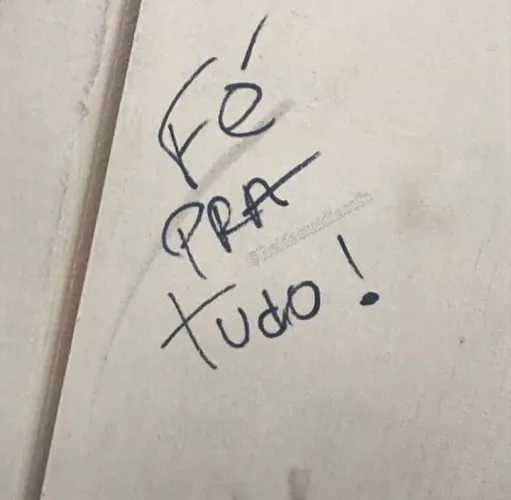 Fé
PRA
tudo!